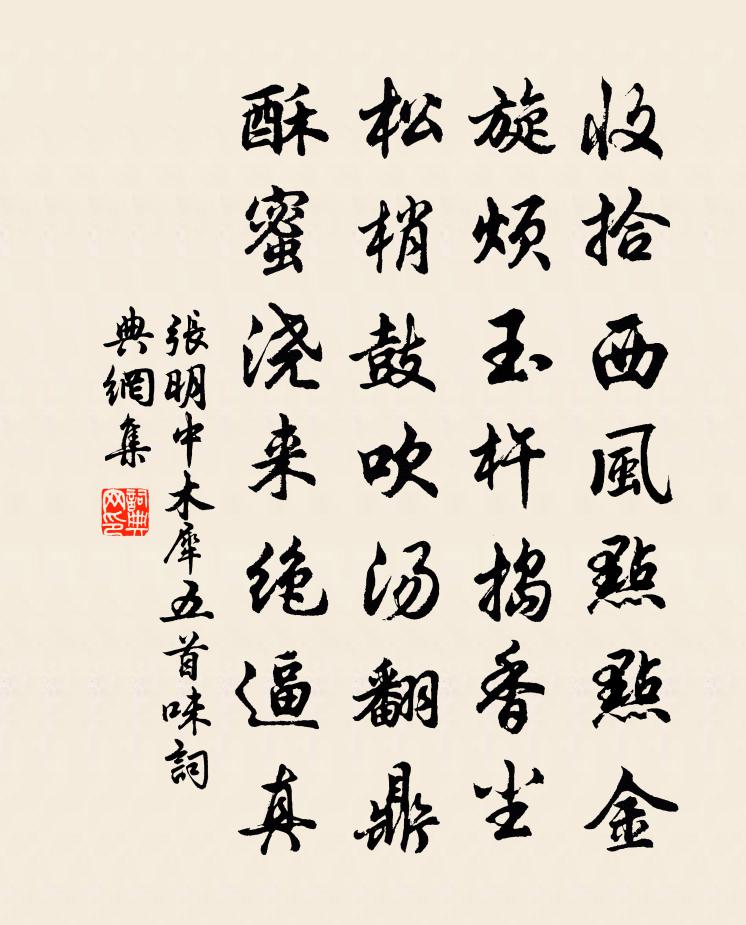 收拾西風點點金
旋煩玉杵搗香尘
松梢鼓吹汤翻鼎
酥蜜浇来绝逼真
張明中木犀五首味詞
典網集
詞典网印